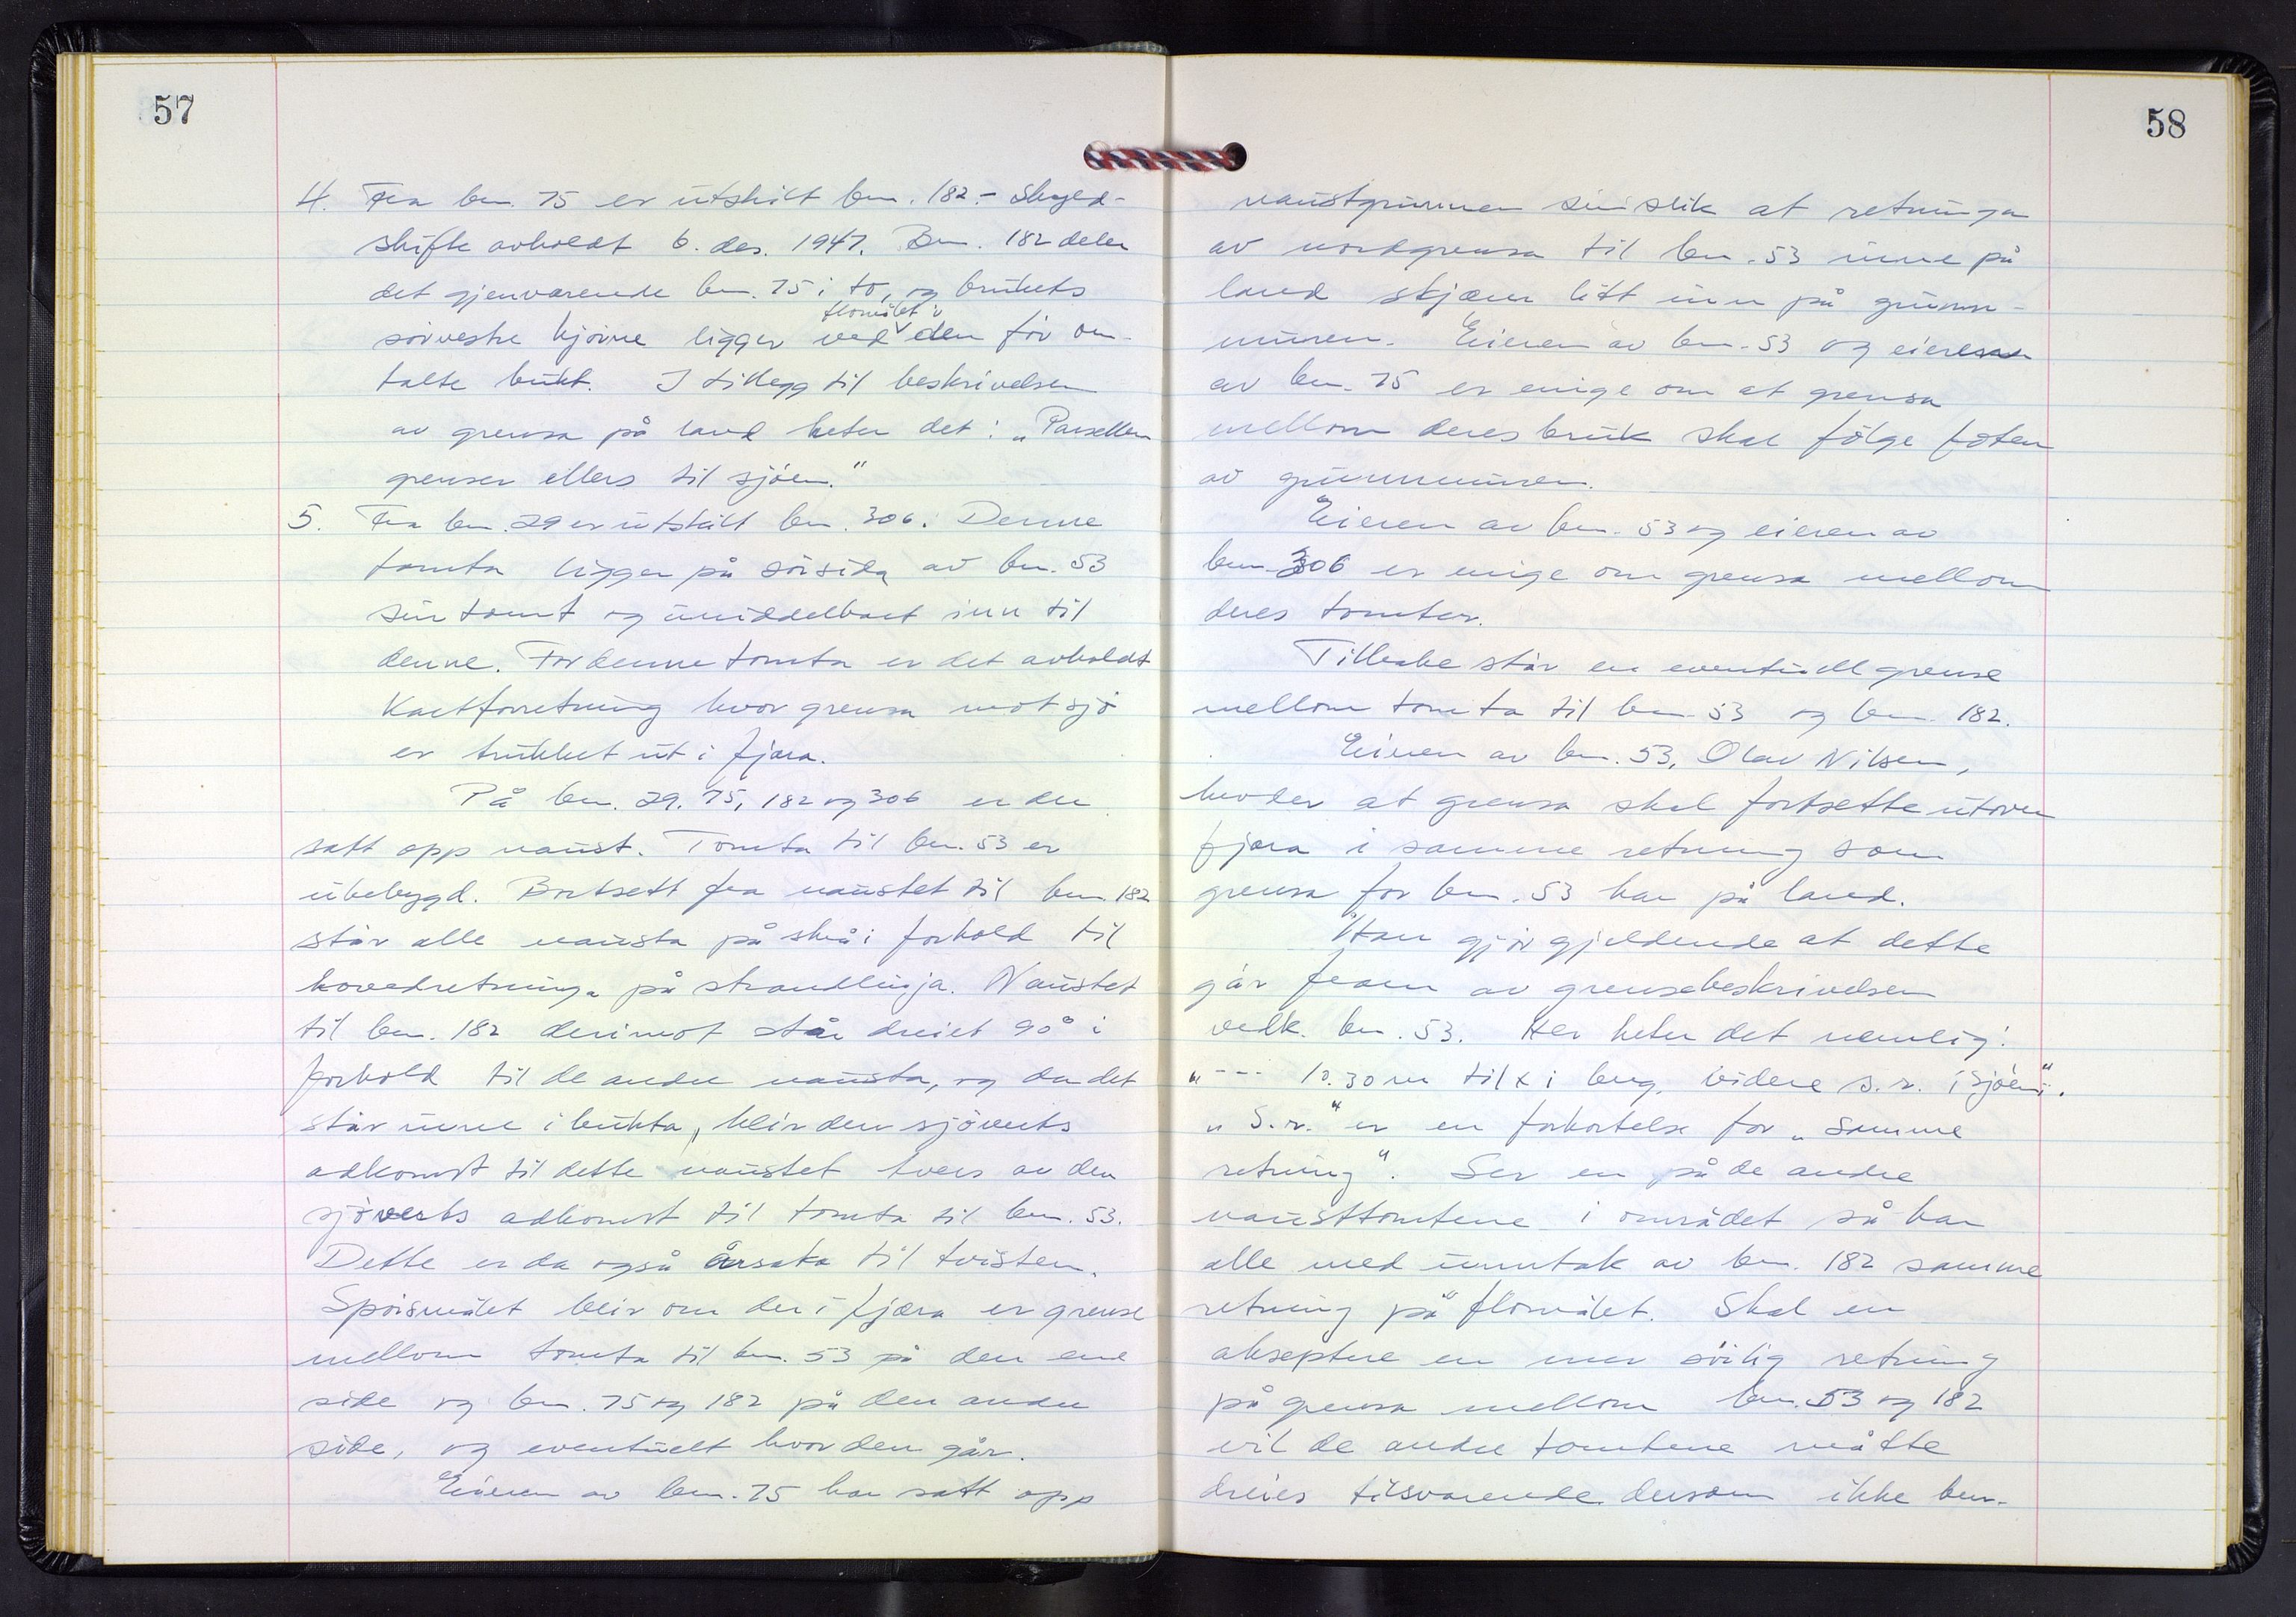 57
4. Fra bnr. 75 er utskilt bnr. 182. – Skyld-
skifte avholdt 6. des. 1947. Bnr. 182 deler
det gjenværende bnr. 75 i to, og brukets
flomålet i
sørvestre hjørne ligger ved den før om-
talte bukt. I tillegg til beskrivelsen
av grensa på land heter det: „Parsellen
grenser ellers til sjøen."
5. Fra bnr. 29 er utskilt bnr. 306. Denne
tomta ligger på sørsida av bnr. 53
sin tomt og umiddelbart inn til
denne. For denne tomta er det avholdt
Kartforretning hvor grensa mot sjø
er trukket ut i fjæra.
På bnr. 29, 75, 182 og 306 er der
satt opp naust. Tomta til bnr. 53 er
ubebygd. Bortsett fra naustet til bnr. 182
står alle nausta på skrå i forhold til
hovedretninga på strandlinja. Naustet
til bnr. 182 derimot står dreiet 90° i
forhold til de andre nausta, og da det
står inne i bukta, blir den sjøverts
adkomst til dette naustet tvers av den
sjøverts adkomst til tomta til bnr. 53.
Dette er da også årsaka til tvisten.
Spørsmålet blir om der i fjæra er grense
mellom tomta til bnr. 53 på den ene
side og bnr. 75 og 182 på den andre
side, og eventuelt hvor den går.
Eieren av bnr. 75 har satt opp
58
naustgrunnen sin slik at retninga
av nordgrensa til bnr. 53 inne på
land skjærer litt inn på grunn-
muren. Eieren av bnr. 53 og eieren
av bnr. 75 er enige om at grensa
mellom deres bruk skal følge foten
av grunnmuren.
Eieren av bnr. 53 og eieren av
bnr. 306 er enige om grensa mellom
deres tomter.
Tilbake står en eventuell grense
mellom tomta til bnr. 53 og bnr. 182.
Eieren av bnr. 53, Olav Nilsen,
hevder at grensa skal fortsette utover
fjæra i samme retning som
grensa for bnr. 53 har på land.
Han gjør gjeldende at dette
går fram av grensebeskrivelsen
vedk. bnr. 53. Her heter det nemlig:
„--- 10.30 m til x i berg, videre s.r. i sjøen".
„S.r." er en forkortelse for „samme
retning". Ser en på de andre
nausttomtene i området så har
alle med unntak av bnr. 182 samme
retning på flomålet. Skal en
akseptere en mer sørlig retning
på grensa mellom bnr. 53 og 182
vil de andre tomtene måtte
dreies tilsvarende dersom ikke bnr.